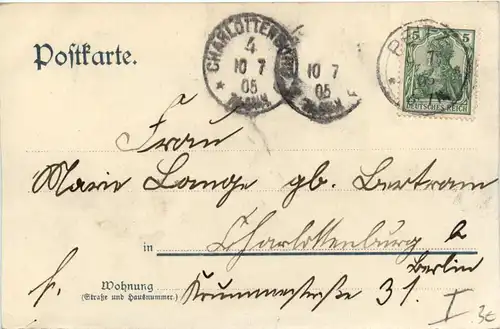 Postkarte.
CHARLOTTENBURG
4
10 7
05
10 7
05
5 5
DEUTSCHES REICH
Frau
Marie Lange gb. Bertram
in Charlottenburg b
Berlin
Wohnung
(Straße und Hausnummer.)
Krummestraße 31.
I
3c